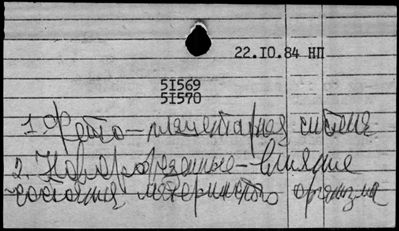 22.IO.84 НП
5I569
5I570
1. Фето-плацентарная система
2. Новорожденные - влияние
состояния материнского организма